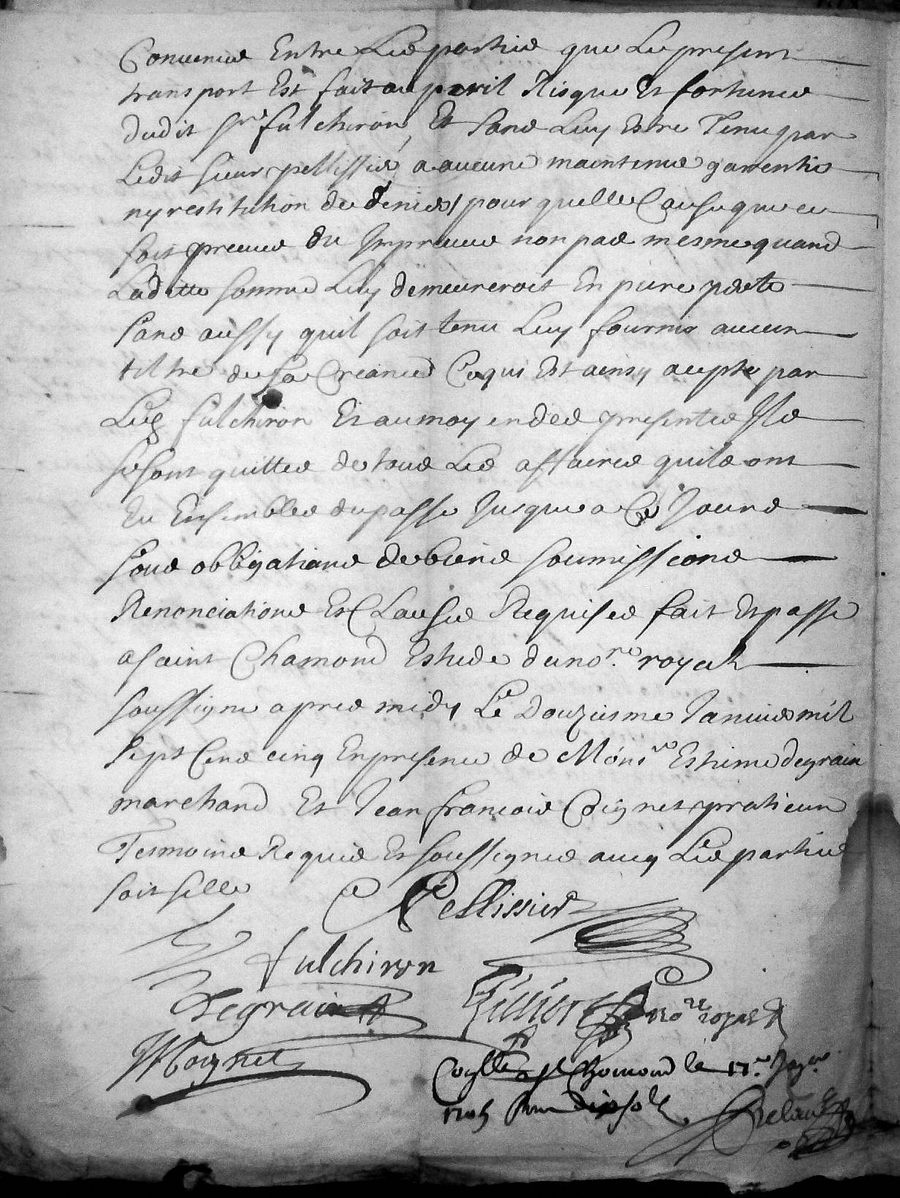 Convenue Entre Les parties que Le present
transport Est fait au peril Risque Et fortune
dudit Sr fulchiron, Et sans Luy Estre Tenu par
Ledit sieur pellissier a aucune maintenue garentie
ny restitution de deniers pour quelle Cause que ce
soit preveue ou Impreveue non pas mesme quand
Laditte somme Luy demeureroit En pure perte
sans aussy quil soit tenu Luy fournir aucun
tiltre de sa Creance Ce qui Est ainsy accepte par
Led fulchiron Et au moyen des presentes Ils
se sont quittes de tous Les affaires quils ont
Eu Ensembles du passe Jusques a Ce Jourd
sous obligations de biens soumissions
Renonciations Et Clauses Requises fait Et passe
a saint Chamond Estude du nore royal
soussigne apres midy Le Douziesme Janvier mil
sept Cens cinq En presence de Monsr Estienne degrain
marchand Et Jean francois Coignet praticien
Tesmoins Requis Et soussignes avec Les parties
C Pellissier
fulchiron
Degrain
nore royal
Coignet
St Chomond le 17e
1705